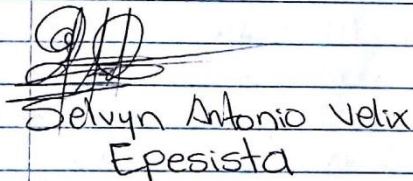 Selvyn Antonio Velix
Epesista